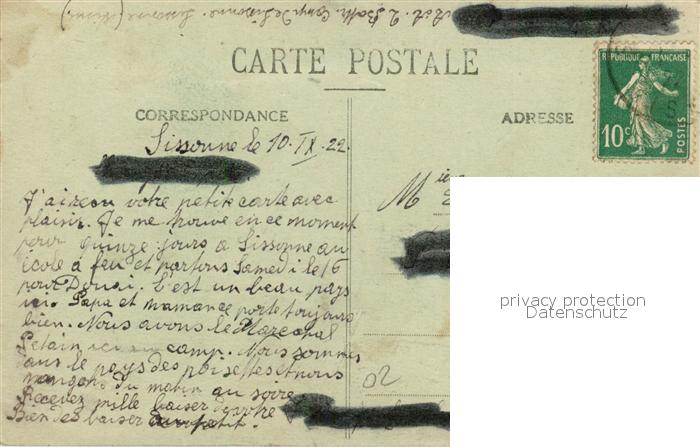 Camp de Sissonne. Sissonne (Aisne).
CARTE POSTALE
CORRESPONDANCE
ADRESSE
REPUBLIQUE FRANÇAISE
10c
POSTES
Sissonne le 10. IX. 22.
J'ai reçu votre petite carte avec
plaisir. Je me trouve en ce moment
pour quinze jours a Sissonne au
école a feu et partons Samedi le 16
pour Douai. C'est un beau pays
ici. Papa et maman ce porte toujours
bien. Nous avons le Marechal
Petain ici au camp. Nous sommes
dans le pays des noisettes et nous
mangons du matin au soire
Recevez mille baiser de votre
Bien des baiser
02
privacy protection
Datenschutz